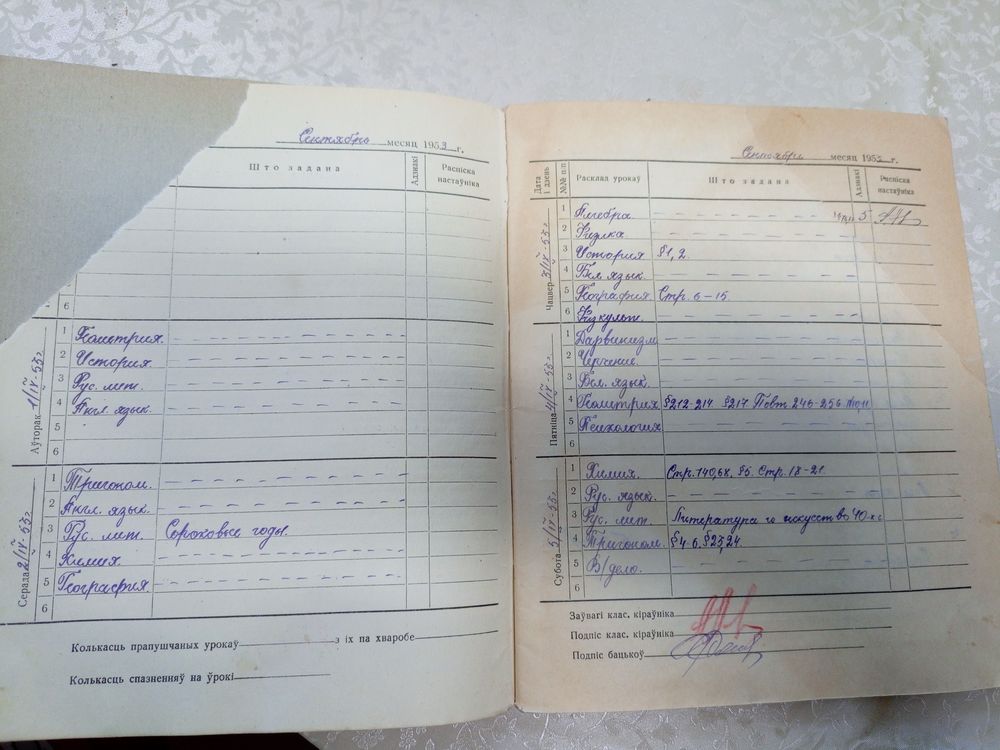 Сентябрь месяц 1953 г.
Што задана Адзнакі Распіска настаўніка
6
Аўторак 1/IX-53г.
1 Геометрия.
2 История.
3 Рус. лит.
4 Англ. язык.
5
6
Серада 2/IX-53г.
1 Тригоном.
2 Англ. язык.
3 Рус. лит. Сороковые годы.
4 Химия.
5 География.
6
Колькасць прапушчаных урокаў з іх па хваробе
Колькасць спазненняў на ўрокі
Сентябрь месяц 1953 г.
Дата і дзень №№ п.п. Расклад урокаў Што задана Адзнакі Распіска настаўніка
Чацвер 3/IX-53г.
1 Алгебра. 5
2 Физика.
3 История §1, 2.
4 Бел. язык.
5 География. Стр. 6-15.
6 Физкульт.
Пятніца 4/IX-53г.
1 Дарвинизм
2 Черчение.
3 Бел. язык.
4 Геометрия §212-214 §217 Повт 246-256
5 Психология
6
Субота 5/IX-53г.
1 Химия. Стр. 140,68, §5. Стр. 18-21
2 Рус. язык.
3 Рус. лит. Литература и искусство 40-х
4 Тригоном. §4-6, §23,24.
5 В/дело.
6
Заўвагі клас. кіраўніка
Подпіс клас. кіраўніка
Подпіс бацькоў